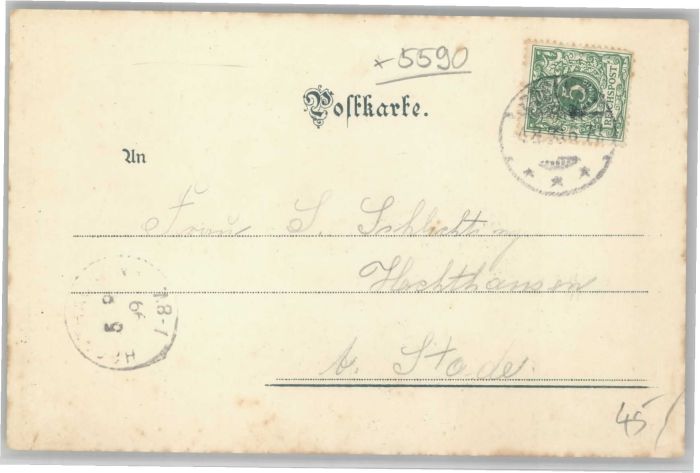 5590
5
REICHSPOST
Postkarte.
An
Frau S. Schlichting
Hechthausen
b. Stade.
45